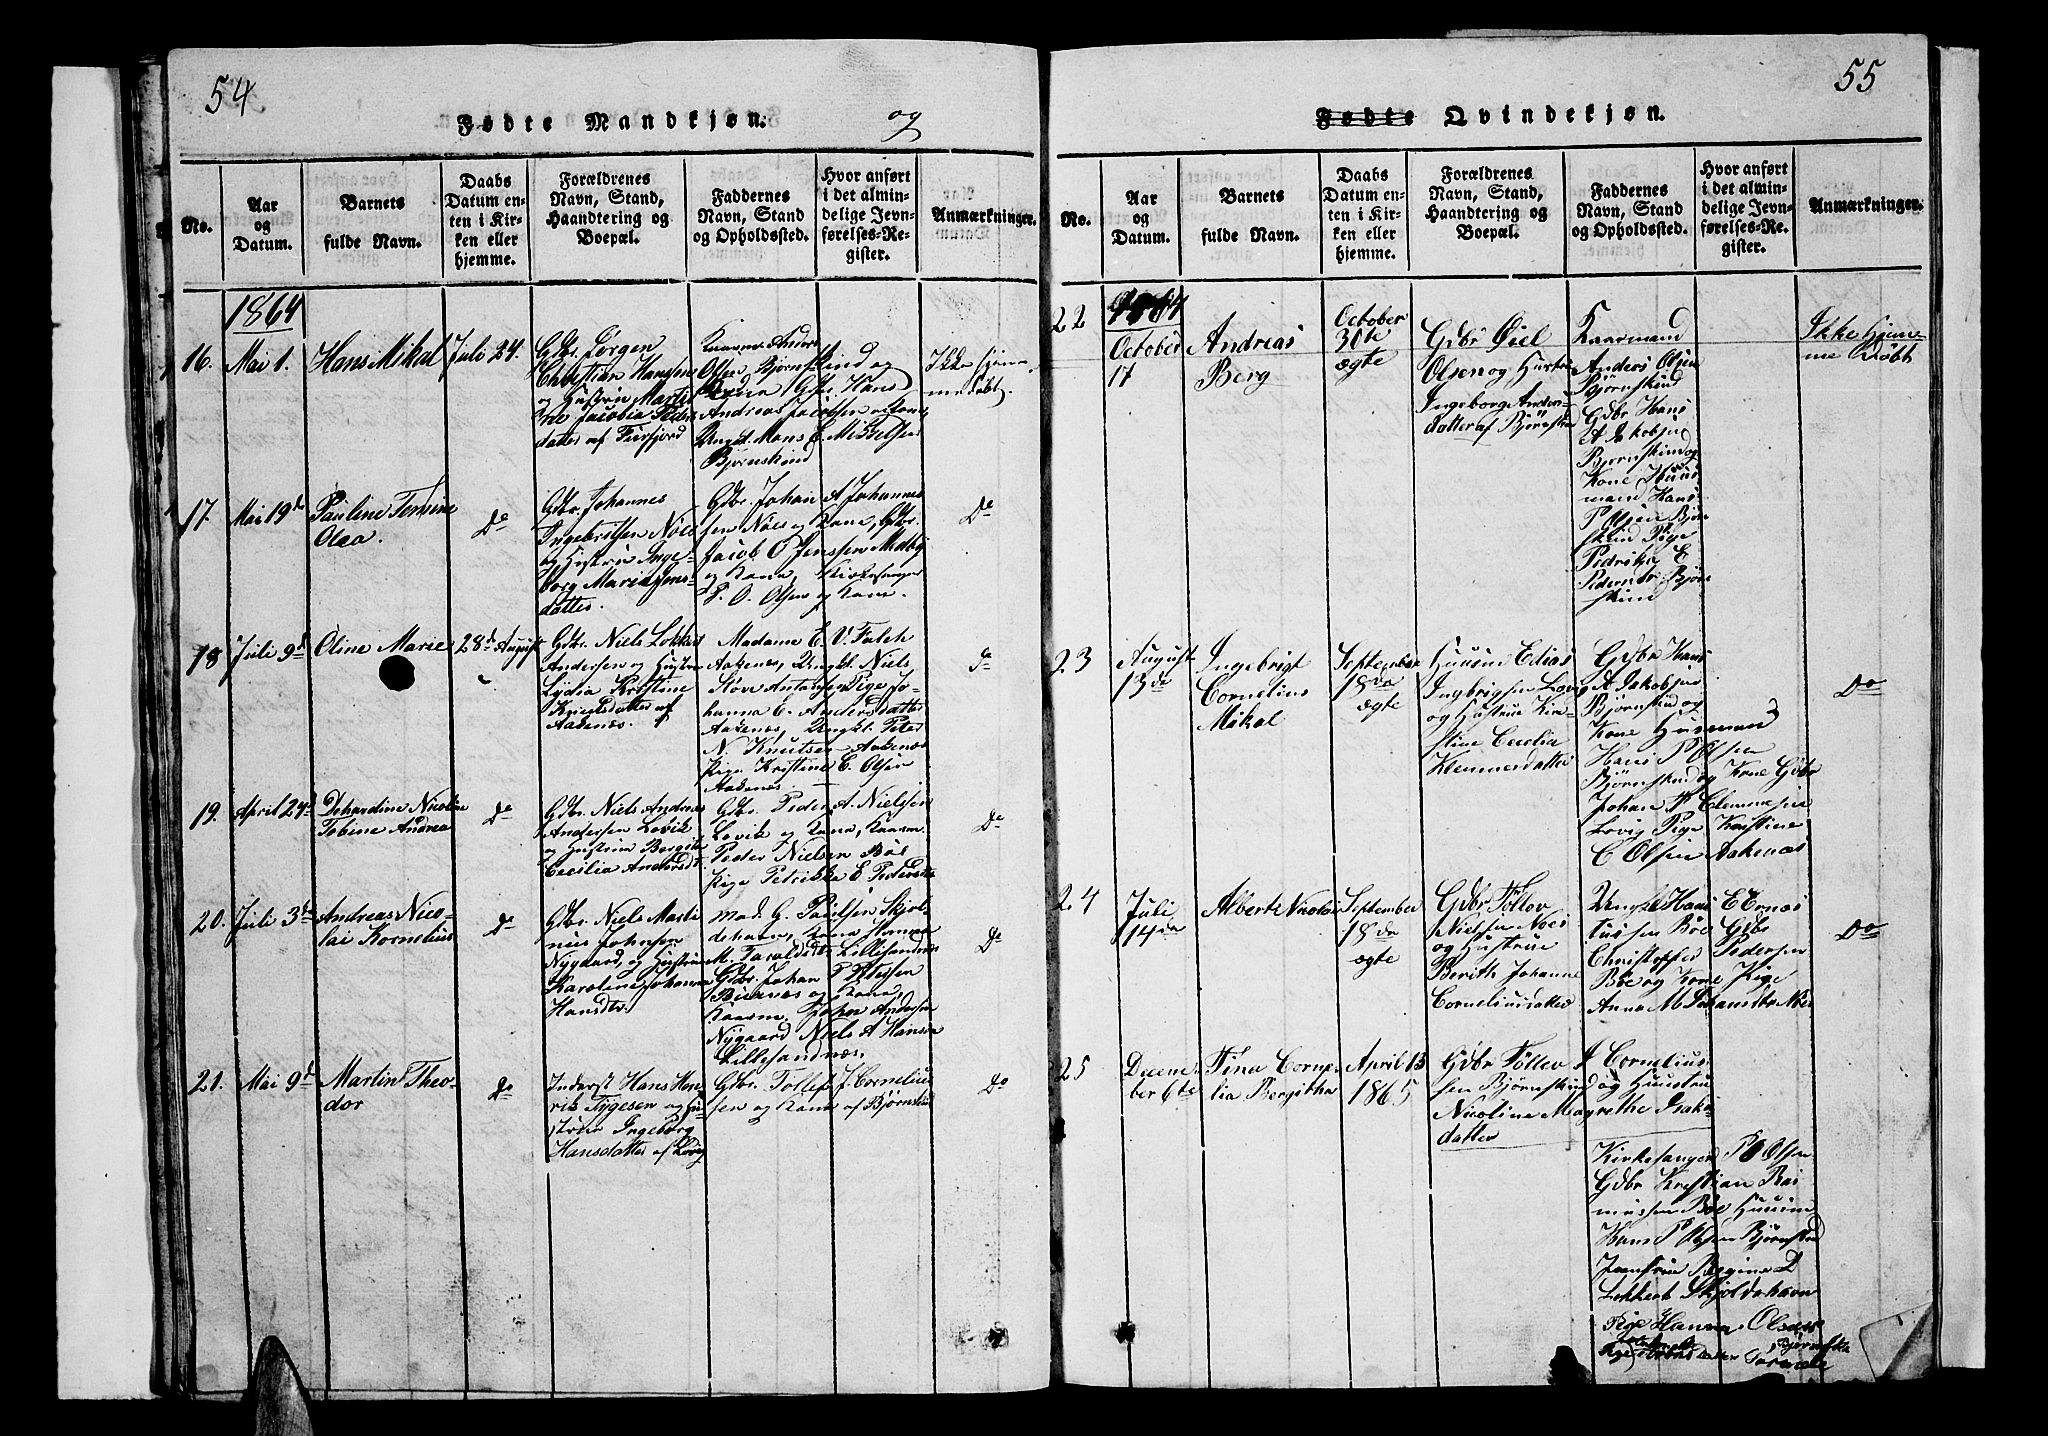 54
Fødte Mandkjøn.
og
No.
Aar
og
Datum.
Barnets
fulde Navn.
Daabs
Datum en-
ten i Kir-
ken eller
hjemme.
Forældrenes
Navn, Stand,
Haandtering og
Boepæl.
Faddernes
Navn, Stand
og Opholdssted.
Hvor anført
i det almin-
delige Jevn-
førelses-Re-
gister.
Anmærkninger.
1864
16.
Mai 1.
Hans Mikal
Juli 24.
Gdbr. Jørgen
Christian Hansen
og Hustru
Jacobia Peders
datter af
Olsen Bjørnskind og
Gdbr. Hans
Andreas Jacobsen
Ungk. Hans E. Mikkelsen
Bjørnskind
Ikke hjem-
medøbt.
17.
Mai 19de
Pauline
Olea.
Do
Gdbr. Johannes
Ingebritsen Noes
og Hustru Inge-
borg Maria Jens-
datter.
Gdbr. Johan A Johannes
sen Noes og Kone, Gdbr.
Jacob O Jenssen Melby
og Kone, Kirkesanger
P. O. Olsen og Kone.
Do
18
Juli 9d
Oline Marie
28de August
Gdbr. Niels
Andersen og Hustru
Lydia Kristine
Knudsdatter af
Aakenæs.
Madame E. V. Falch
Aakenes, Ungkl. Niels
Antonsen Pige Jo-
hanna E. Andersdatter
Aakenes, Ungkl. Peter
N. Knutsen Aakenæs
Pige Kristine C. Olsen
Aakenæs
Do
19.
April 27d
Nicoline
Tobine Andrea
Do
Gdbr. Niels Andreas
Andersen Lovik
og Hustru Bergite
Cecilia Andersdt
Gdbr. Peder A. Nielsen
Lovik og Kone, Kaarm.
Peder Nielsen Bøe
Pige Petrikke E Pedersdt
Do
20.
Juli 3de
Andreas Nico-
lai Kornelius
Do
Gdbr. Niels Marti
nus Johnsen
Nygaard, og Hustru
Karoline Johanna
Hansdtr.
Mad. G. Paulsen Skjol-
dehavn, Kone Hanna
M. Lillesandnes
Gdbr. Johan P Petersen
og Kone,
Kaarm. Andersen
Nygaard Niels A Hansen
Lillesandnæs.
Do
21.
Mai 9d
Martin Theo-
dor
Do
Inderst Hans Hen
rik Tygesen og Hu
strue Ingeborg
Hansdatter af Lovig
Gdbr. Tollef J. Cornelius
sen og Kone af Bjørnskind
Do
55
Fødte Qvindekjøn.
No.
Aar
og
Datum.
Barnets
fulde Navn.
Daabs
Datum en-
ten i Kir-
ken eller
hjemme.
Forældrenes
Navn, Stand,
Haandtering og
Boepæl.
Faddernes
Navn, Stand
og Opholdssted.
Hvor anført
i det almin-
delige Jevn-
førelses-Re-
gister.
Anmærkninger.
22
1864
October
17
Andreas
Berg
October
30te
ægte
Gdbr
Olsen og Hustru
Ingeborg Anders
datter af Bjørnskin
Kaarmand
Anders Olsen
Bjørnskind
Gdbr Hans
A Jakobsen
Bjørnskind og
Kone Huus
mand Hans
P Olsen Bjørn
skind Pige
Pedrikke E
Pedersdtr Bjørn
skind
Ikke hjem-
me Døbt
23
August
13de
Ingebrigt
Cornelius
Mikal
September
18de
ægte
Huusm Edias
Ingbrigtsen Lovig
og Hustrue Kir-
stine Cecelia
Klemmersdatter
Gdbr Hans
A Jakobsen
Bjørnskind og
Kone Husmand
Hans P Olsen
Bjørnskind og Kone Gdbr
Johan P Clemmesen
Lovig Pige Kristine
C Olsen Aakenæs
Do
24
Juli
14de
Alberte Nicolai
September
18de
ægte
Gdbr Töllov
Nielsen Noes
og Hustrue
Berith Johanne
Corneliusdatter
Ungkl Hans E Ernæs
tussen Böe Gdbr
Christoffer Pedersen
Böe og Kone Pige
Anna M Johansdtr Noes
Do
25
Decem-
ber 6te
Tina Corne-
lia Bergitha
April 13
1865
Gdbr Töllev J Cornelius
sen Bjørnskind og Hustru
Nicoline Magrethe Isak-
datter
Kirkesanger P O Olsen
Gdbr Kristian Ras
mussen Böe Huusm
Hans P Olsen Bjørnskind
Jomfrue Regine D
Lokkert Skjoldehavn
Pige Hanna Olsen
Bjørnskin